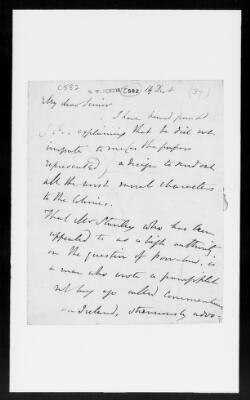 C582
N. W. SENIOR C582 14 Dec
My dear Senior
I have
explaining that he did not
impute to me (as the papers
represented) a design to send out
all the most moral characters
to the Colonies.
That Mr Stanley who has been
appealed to as a high authority
on the question of Poor-laws, is
a man who wrote a pamphlet
not long ago called Commentaries
on Ireland, strenuously advo-